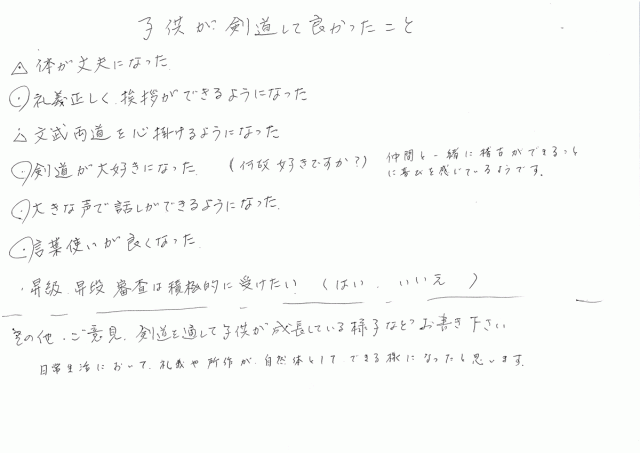 子供が剣道して良かったこと
△ 体が丈夫になった
○ 礼義正しく挨拶ができるようになった
△ 文武両道を心掛けるようになった
○ 剣道が大好きになった (何故好きですか?) 仲間と一緒に稽古ができること
に喜びを感じているようです。
○ 大きな声で話しができるようになった
○ 言葉使いが良くなった
・昇級、昇段審査は積極的に受けたい! (はい、いいえ)
その他・ご意見、剣道を通して子供が成長している様子などお書き下さい
日常生活において、礼義や所作が、自然体としてできる様になったと思います。